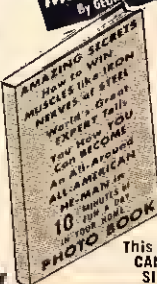 By GEO
AMAZING SECRETS
How to WIN
MUSCLES like IRON
NERVES of STEEL
World's Great
EXPERT Tells
You How YOU
Can BECOME
An All-Around
ALL-AMERICAN
HE-MAN in
10 MINUTES of
FUN A DAY
IN YOUR HOME
PHOTO BOOK
This
CAN
SI